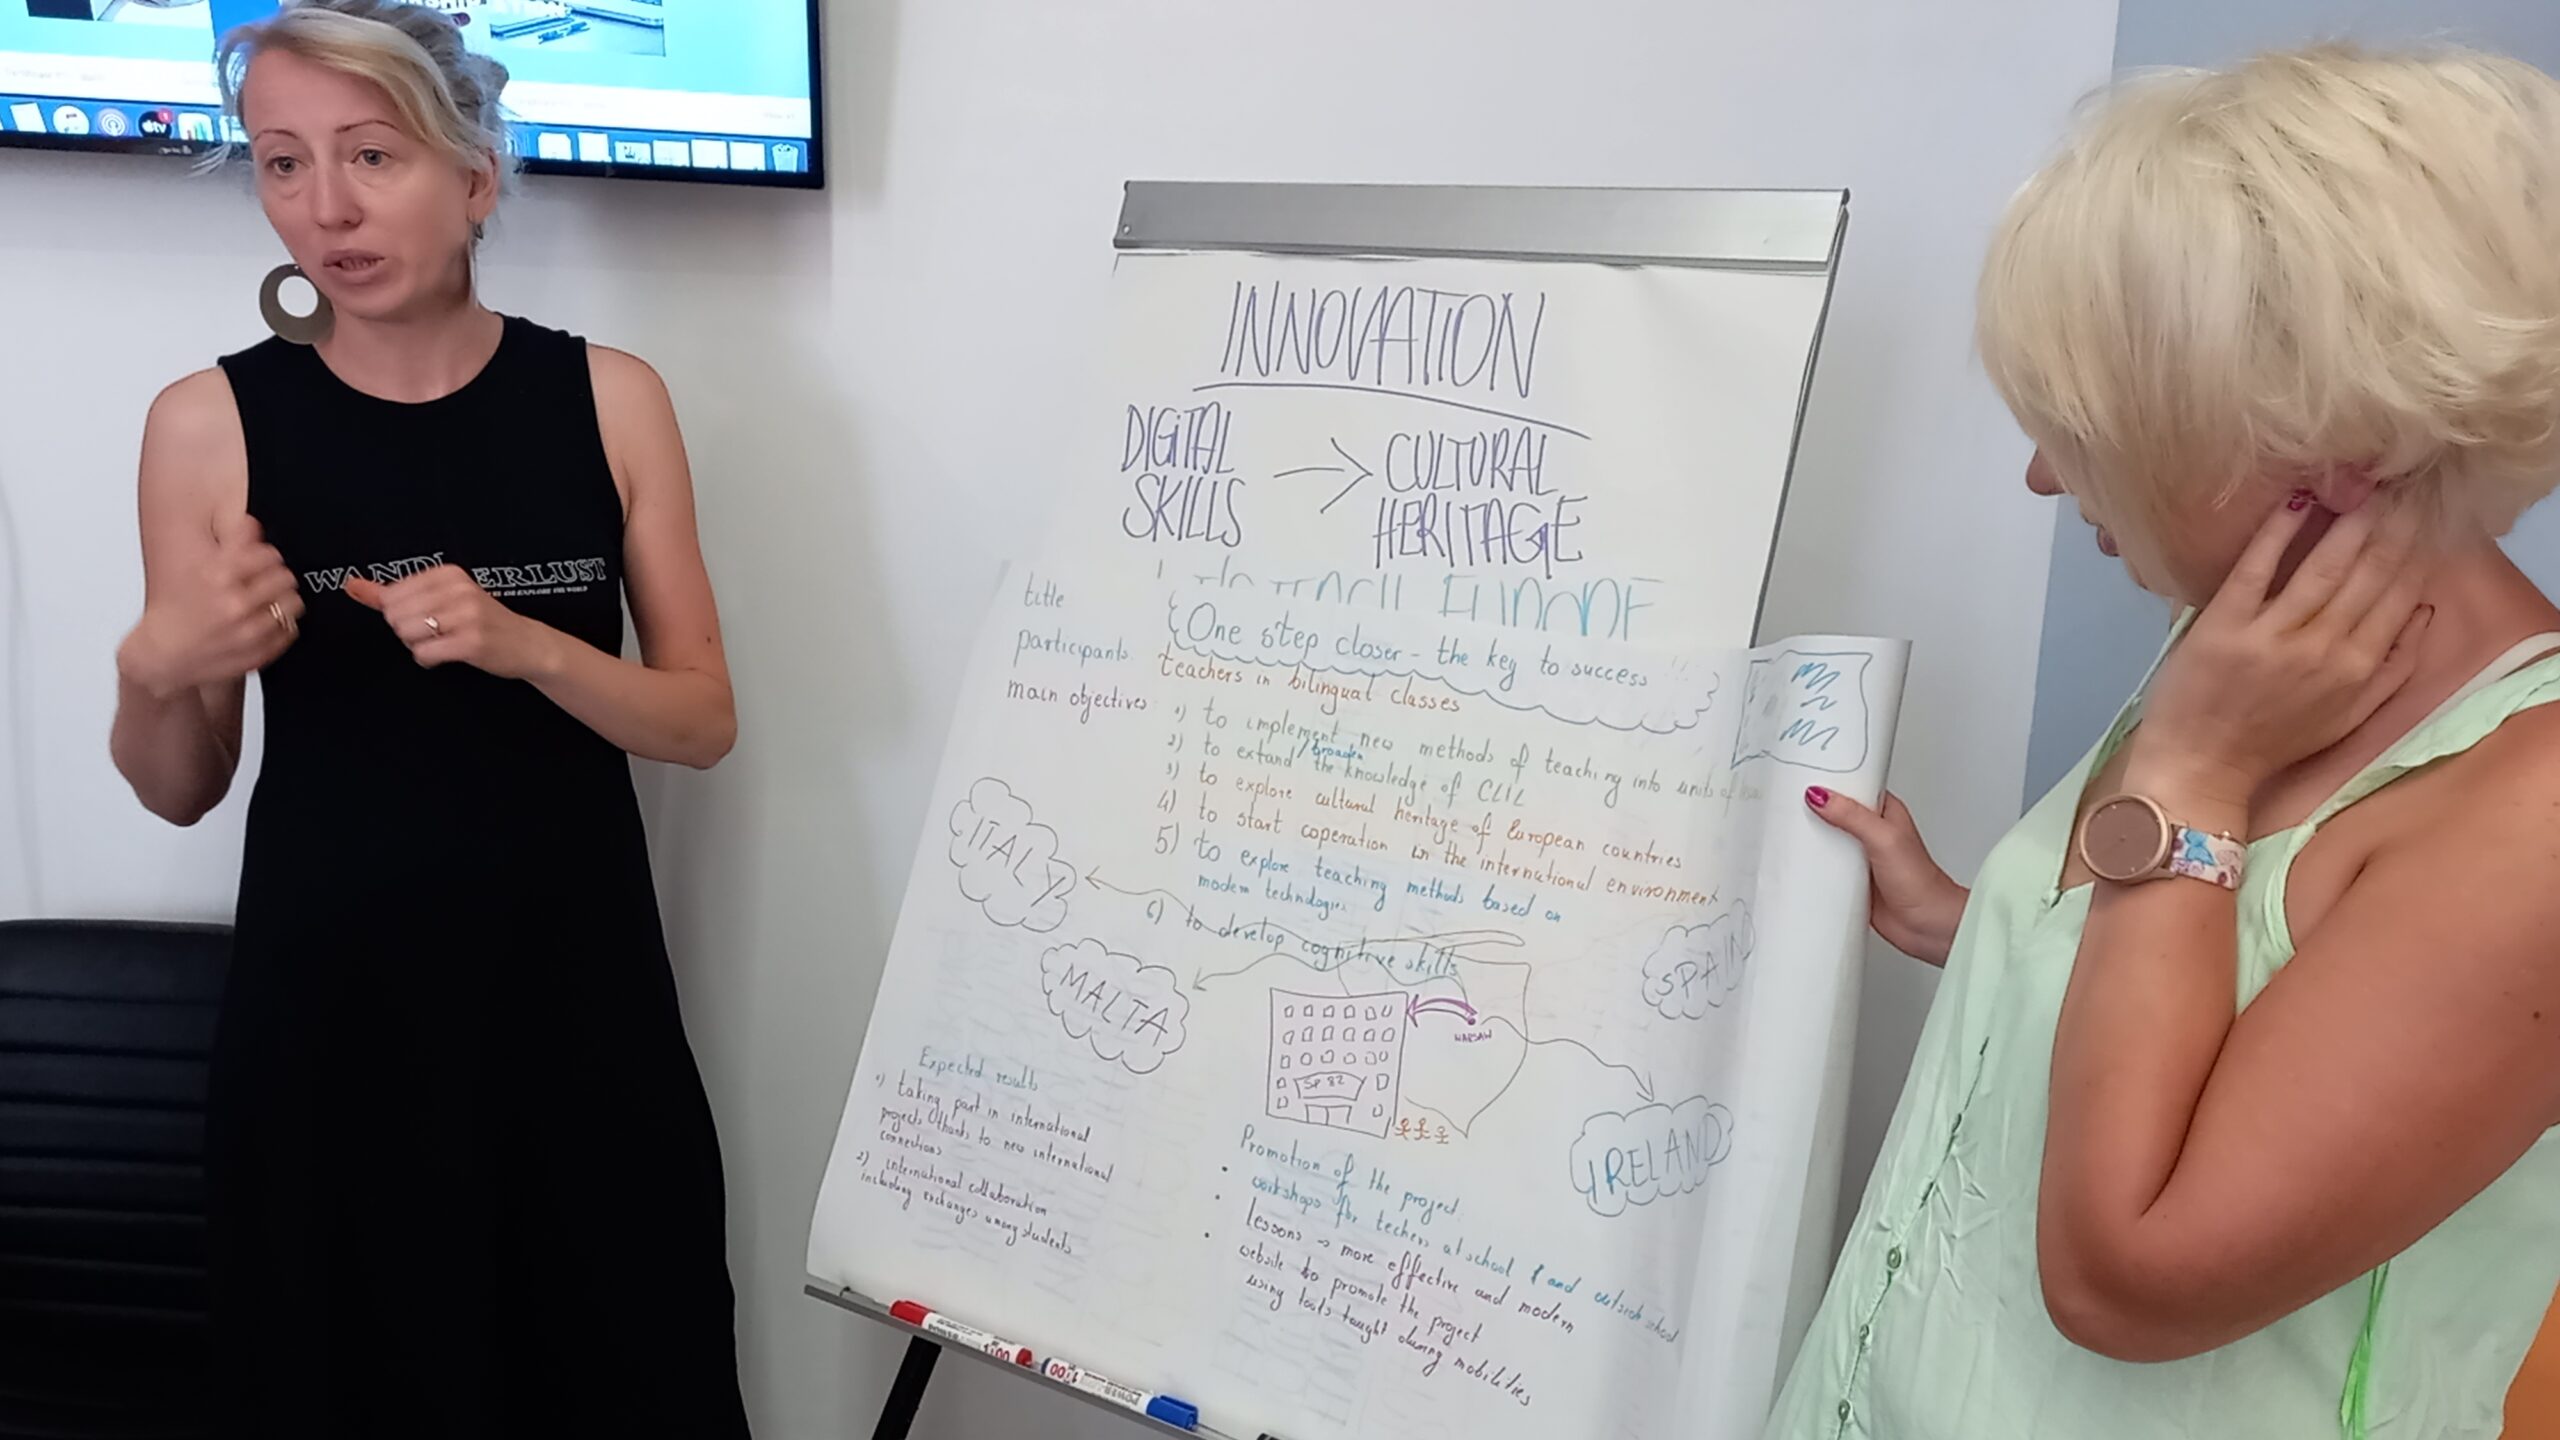 INNOVATION
DIGITAL
SKILLS
CULTURAL
HERITAGE
EUROPE
WANDERLUST
OR EXPLORE THE WORLD
title
One step closer - the key to success !!!
participants: teachers in bilingual classes
main objectives:
1) to implement new methods of teaching into units of
2) to extand / broaden the knowledge of CLIL
3) to explore cultural heritage of European countries
4) to start coperation in the international environment
5) to explore teaching methods based on
modern technologies
6) to develop cognitive skills
ITALY
MALTA
SPAIN
WARSAW
SP 82
IRELAND
Expected results
1) taking part in international
projects thanks to new international
connections
2) international collaboration
including exchanges among students
Promotion of the project:
• workshops for techers at school and outside school
• lessons → more effective and modern
• website to promote the project
using tools taught during mobilities
tv
1